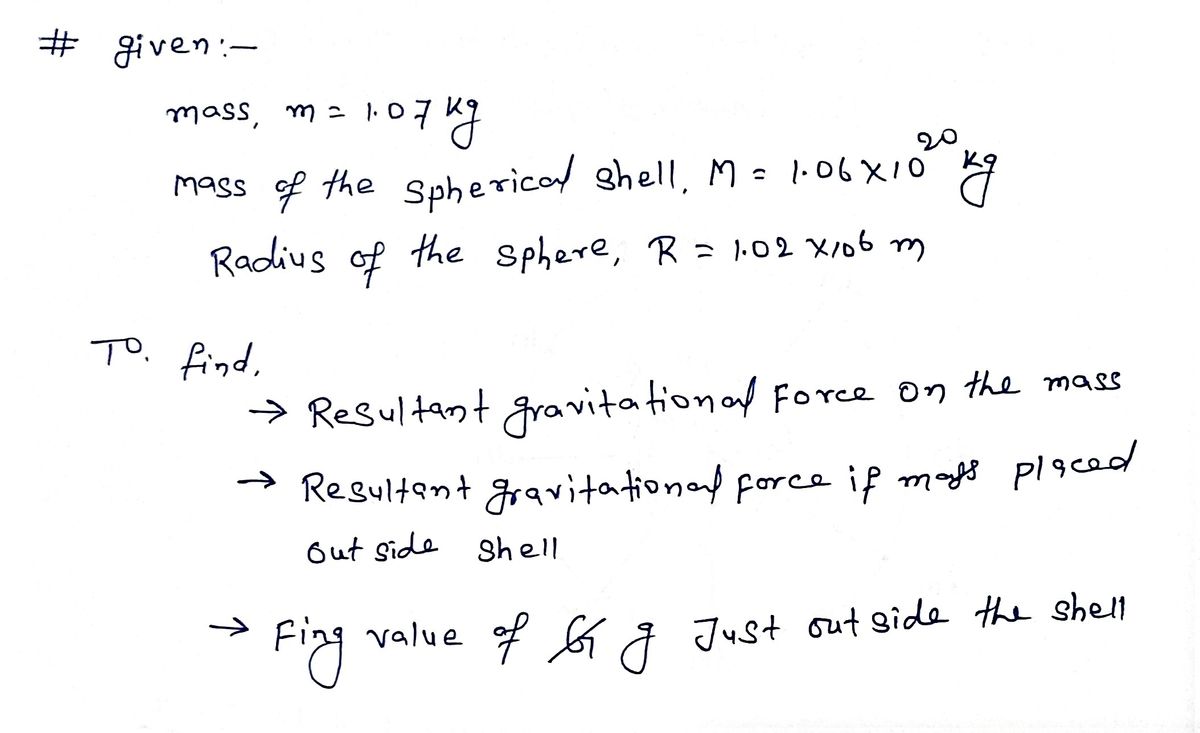 # given:-
mass, m = 1.07 kg
mass of the spherical shell, M = 1.06 × 10²⁰ kg
Radius of the sphere, R = 1.02 × 106 m
To. find,
→ Resultant gravitational Force on the mass
→ Resultant gravitational force if mass placed
out side shell
→ Fing value of g Just out side the shell